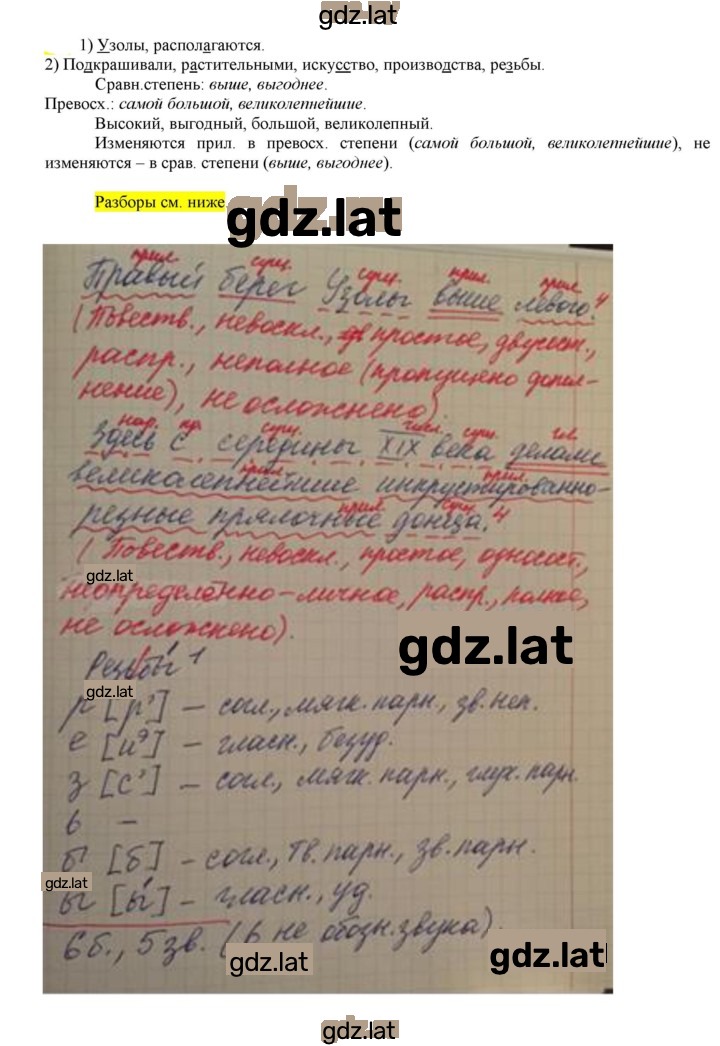 gdz.lat
1) Узолы, располагаются.
2) Подкрашивали, растительными, искусство, производства, резьбы.
Сравн.степень: выше, выгоднее.
Превосх.: самой большой, великолепнейшие.
Высокий, выгодный, большой, великолепный.
Изменяются прил. в превосх. степени (самой большой, великолепнейшие), не
изменяются – в срав. степени (выше, выгоднее).
Разборы см. ниже.
gdz.lat
прил. сущ. сущ. прил. прил.
Правый берег Узолы выше левого. 4
(Повеств., невоскл., простое, двусост.,
распр., неполное (пропущено допол-
нение), не осложнено).
нар. пр. сущ. числ. сущ. гл.
Здесь с середины XIX века делали
прил. прил.
великолепнейшие инкрустированно-
прил. сущ.
резные прялочные донца. 4
(Повеств., невоскл., простое, односост.,
gdz.lat
неопределённо-личное, распр., полное,
не осложнено).
gdz.lat
Резьбы 1
gdz.lat
р [р'] – согл., мягк. парн., зв. неп.
е [иэ] – гласн., безуд.
з [с'] – согл., мягк. парн., глух. парн.
ь –
б [б] – согл., тв. парн., зв. парн.
gdz.lat
ы [ы́] – гласн., уд.
6 б., 5 зв. (ь не обозн. звука).
gdz.lat
gdz.lat
gdz.lat